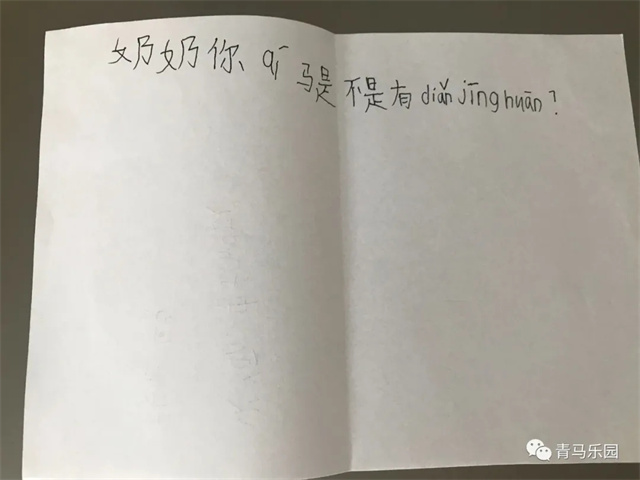 奶奶你 qí 马是不是有 diǎn jīng huān?
青马乐园